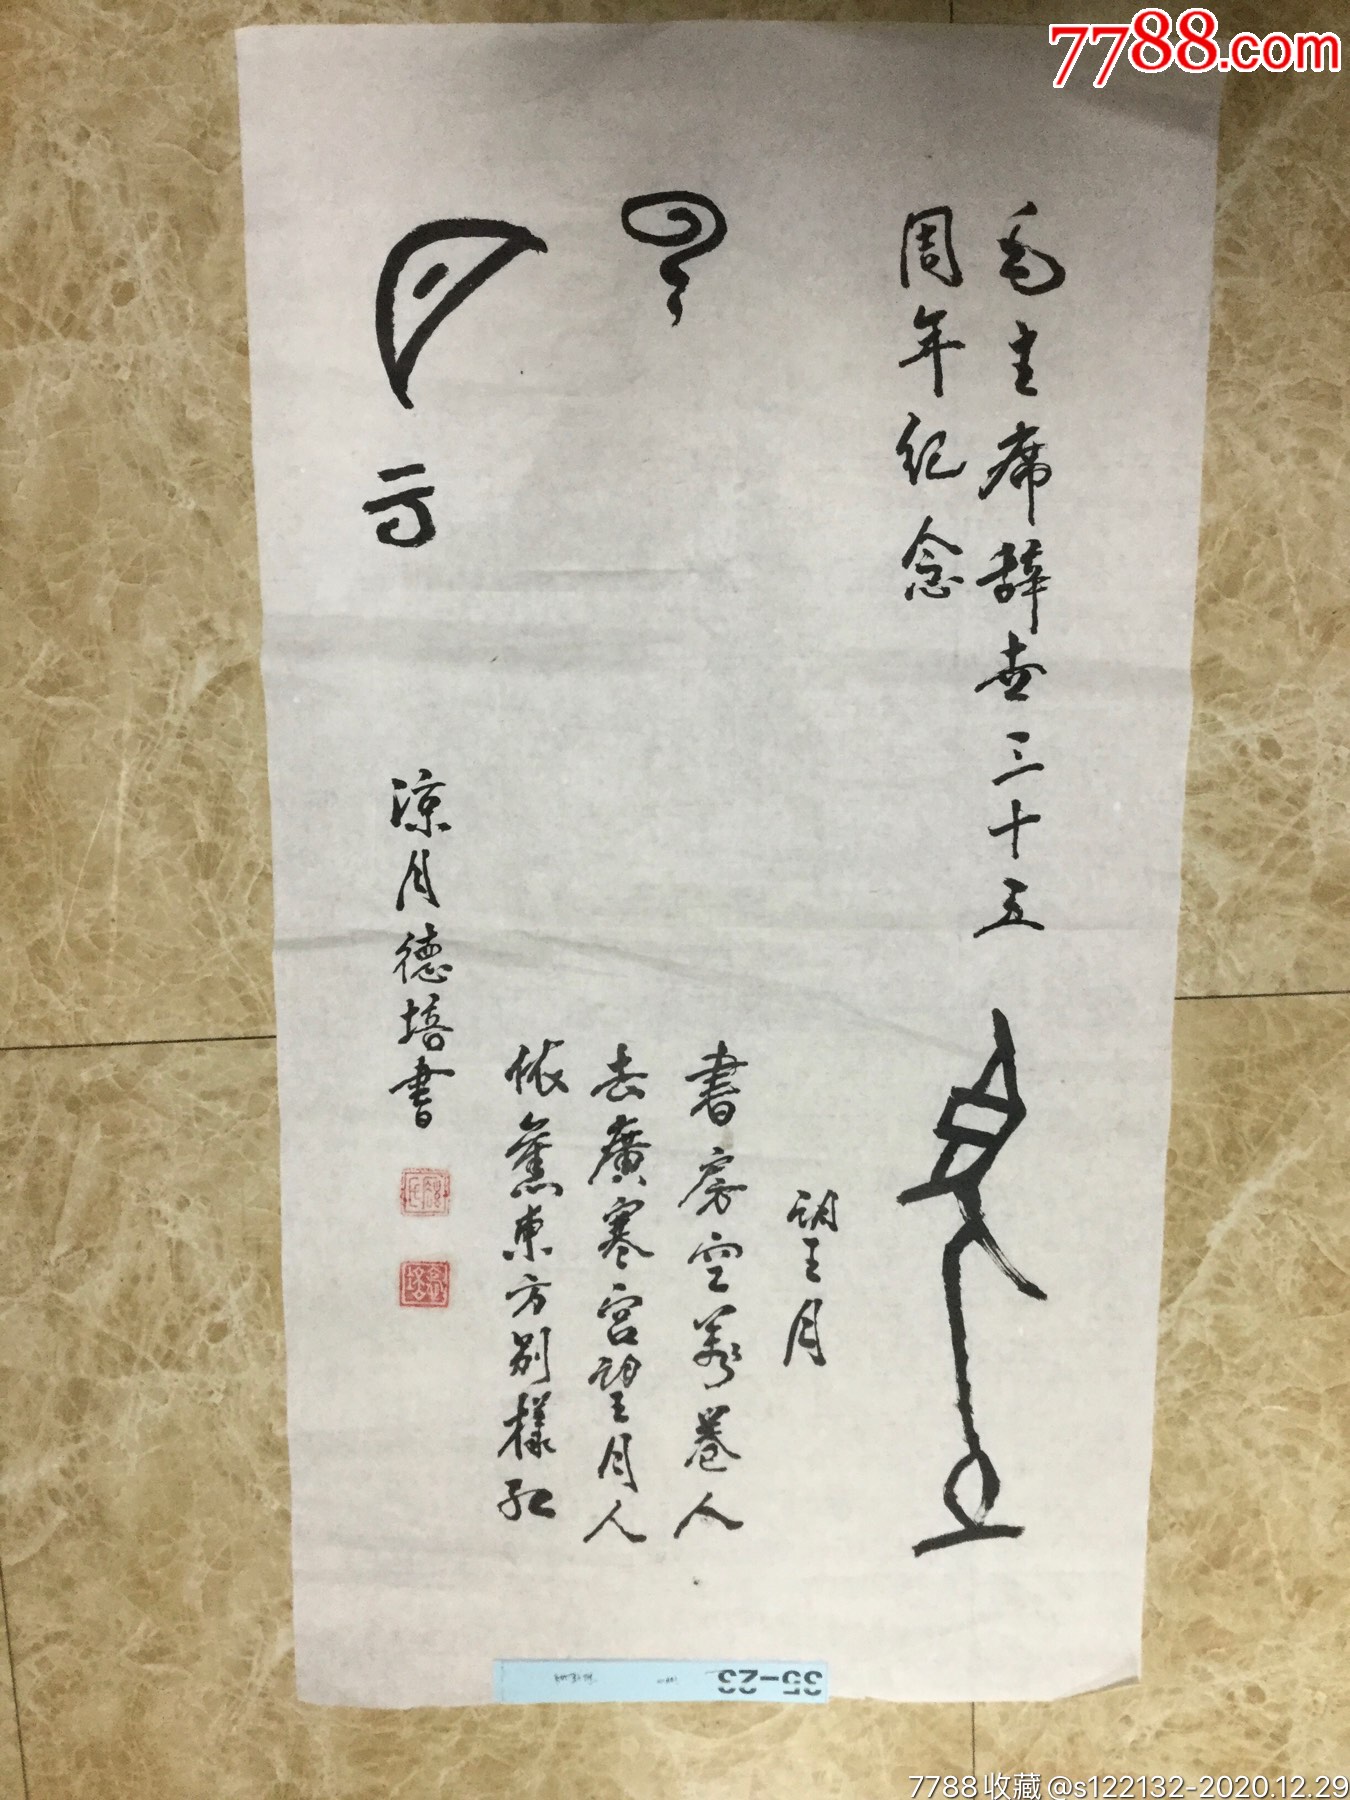 7788.com
毛主席辞世三十五
周年纪念
望月
書房空著卷人
去廣寒宮望月人
依舊東方別樣紅
涼月德培書
35-23
7788收藏@s122132-2020.12.29